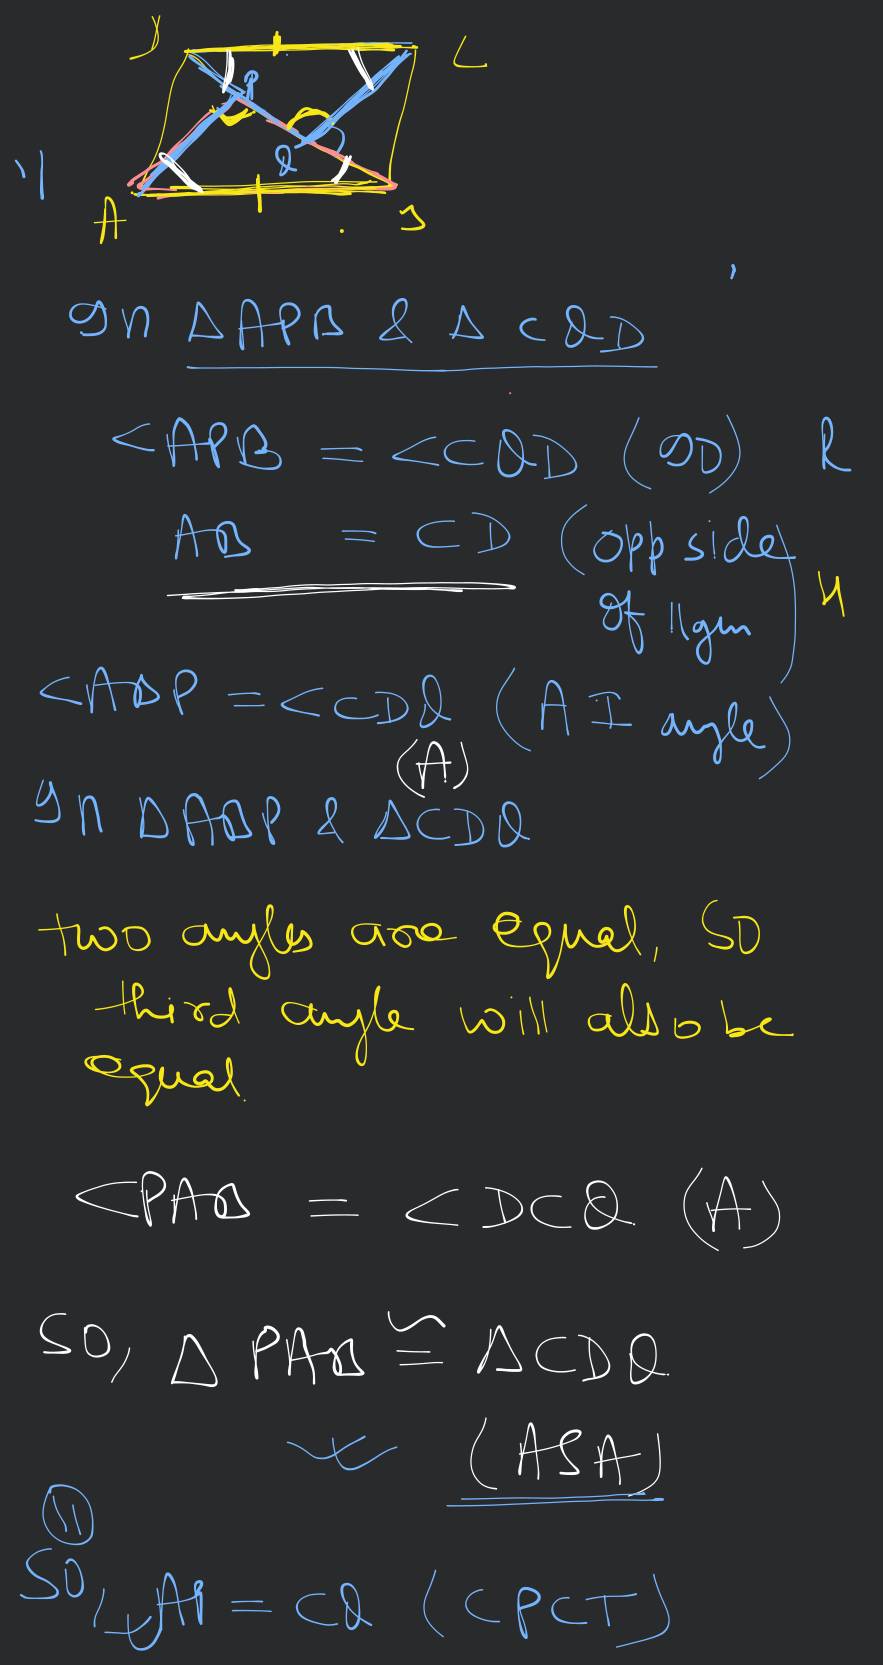 D C
P
Q
1)
A B
In ΔAPB & ΔCQD
<APB = <CQD (90) R
AB = CD (opp side
of ||gm) H
<ABP = <CDQ (A I angle)
(A)
In ΔABP & ΔCDQ
two angles are equal, so
third angle will also be
equal.
<PAB = <DCQ (A)
So, Δ PAB ≅ ΔCDQ
(ASA)
11
So, AP = CQ (CPCT)